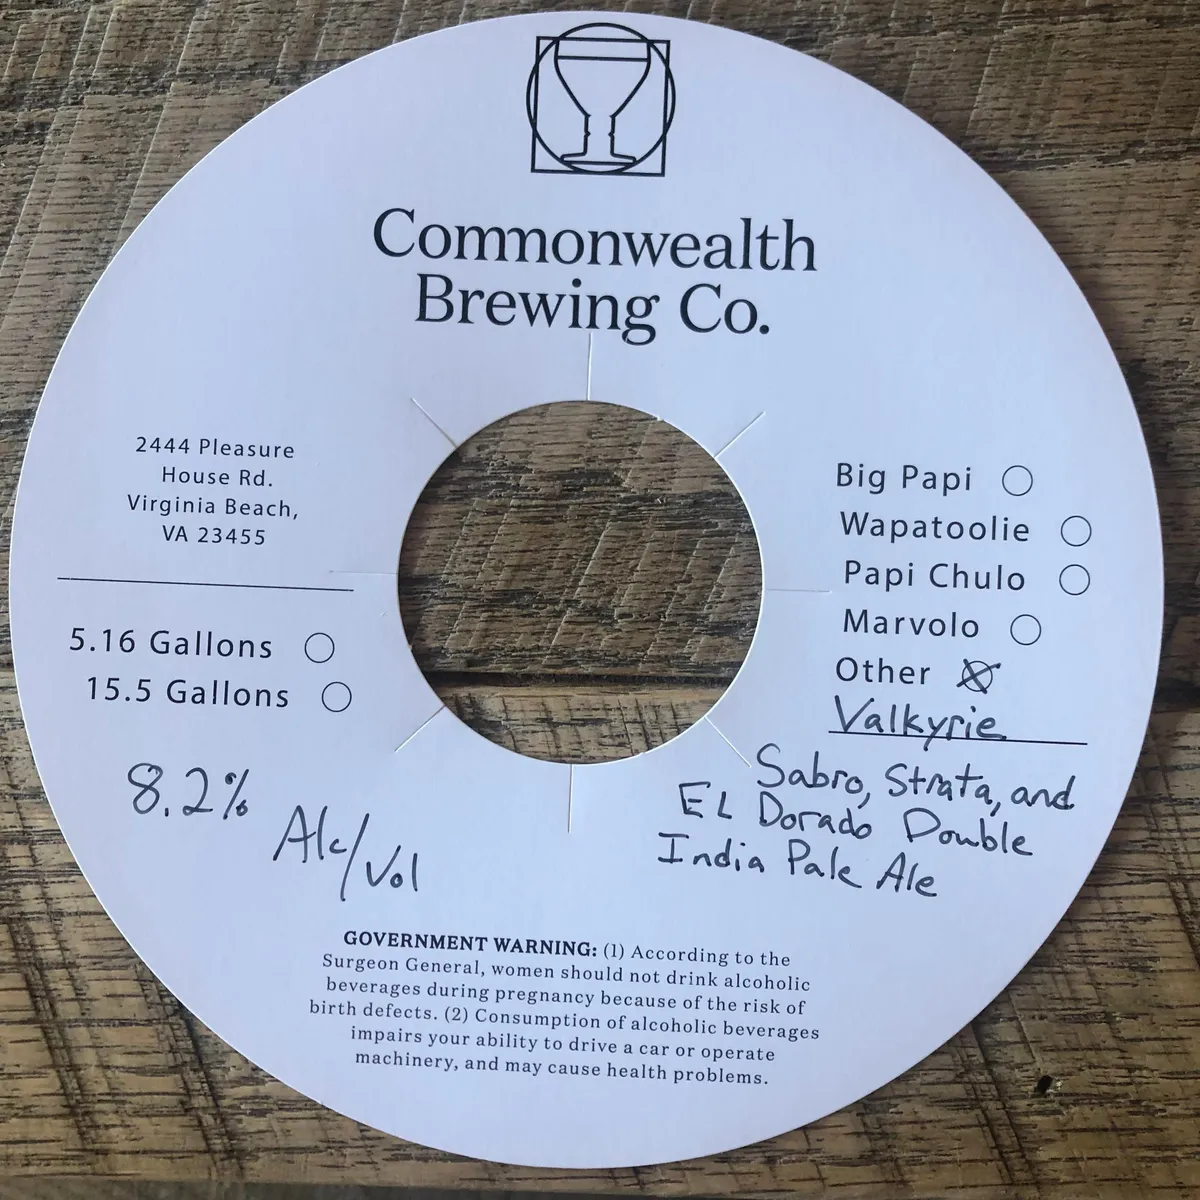 Commonwealth
Brewing Co.
2444 Pleasure
House Rd.
Virginia Beach,
VA 23455
5.16 Gallons
15.5 Gallons
8.2%
Alc/Vol
Big Papi
Wapatoolie
Papi Chulo
Marvolo
Other
Valkyrie
Sabro, Strata, and
EL Dorado Double
India Pale Ale
GOVERNMENT WARNING: (1) According to the
Surgeon General, women should not drink alcoholic
beverages during pregnancy because of the risk of
birth defects. (2) Consumption of alcoholic beverages
impairs your ability to drive a car or operate
machinery, and may cause health problems.